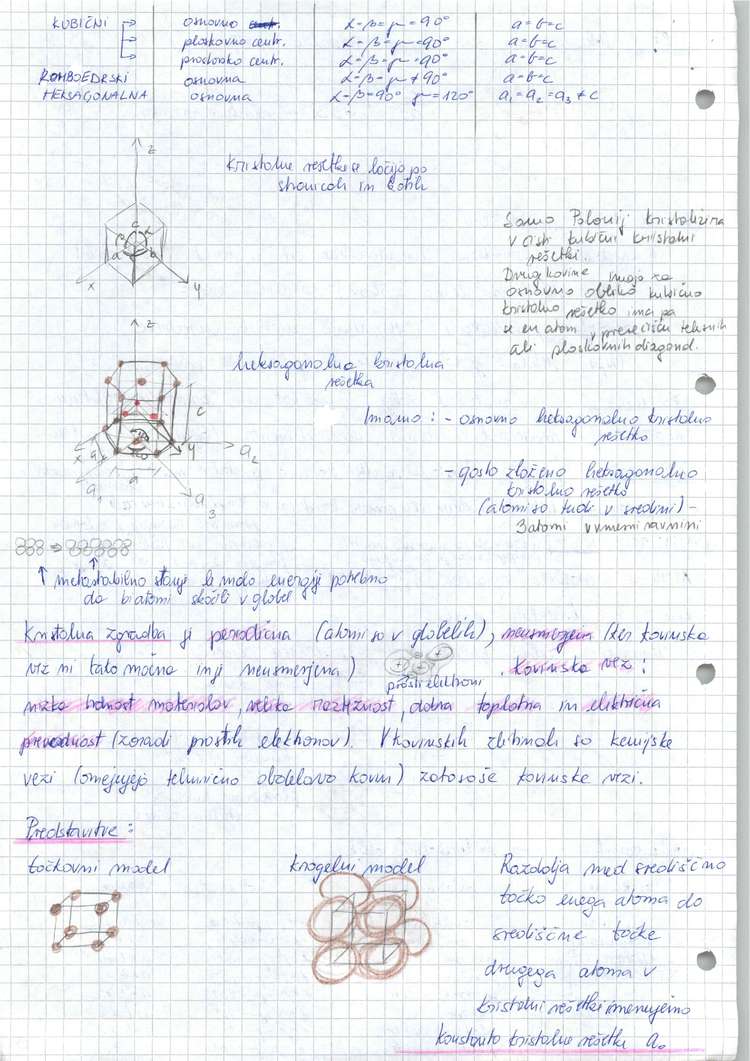 KUBIČNI osnovno α=β=γ=90° a=b=c
ploskovno centr. α=β=γ=90° a=b=c
prostorsko centr. α=β=γ=90° a=b=c
ROMBOEDRSKI osnovna α=β=γ≠90° a=b=c
HEKSAGONALNA osnovna α=β=90° γ=120° a₁=a₂=a₃≠c
z
Kristalne rešetke se ločijo po
stranicah in kotih
c
a b
x y
Samo Polonij kristalizira
v čisti kubični kristalni
rešetki.
Druge kovine imajo za
osnovno obliko kubično
kristalno rešetko ima pa
še en atom v presečišču telesnih
ali ploskovnih diagonal.
z
heksagonalna kristalna
rešetka
c
Imamo: - osnovno heksagonalno kristalno
rešetko
x a y a₂
a
a₁ a₃
- gosto zloženo heksagonalno
kristalno rešetko
(atomi so tudi v sredini) -
3 atomi v vmesni ravnini
↑ metastabilno stanje le malo energije potrebno
da bi atomi skočili v globel
Kristalna zgradba je periodična (atomi so v globelih), neusmerjena (ker kovinska
vez ni tako močna in je neusmerjena)
prosti elektroni
. Kovinska vez:
nizka trdnost materialov, velika raztežnost, dobra toplotna in električna
prevodnost (zaradi prostih elektronov). V kovinskih zlitinah so kemijske
vezi (omejujejo tehnično obdelavo kovin) zatoroše kovinske vezi.
Predstavitve:
točkovni model krogelni model
Razdalja med središčno
točko enega atoma do
središčne točke
drugega atoma v
kristalni rešetki imenujemo
konstanta kristalne rešetke a₀